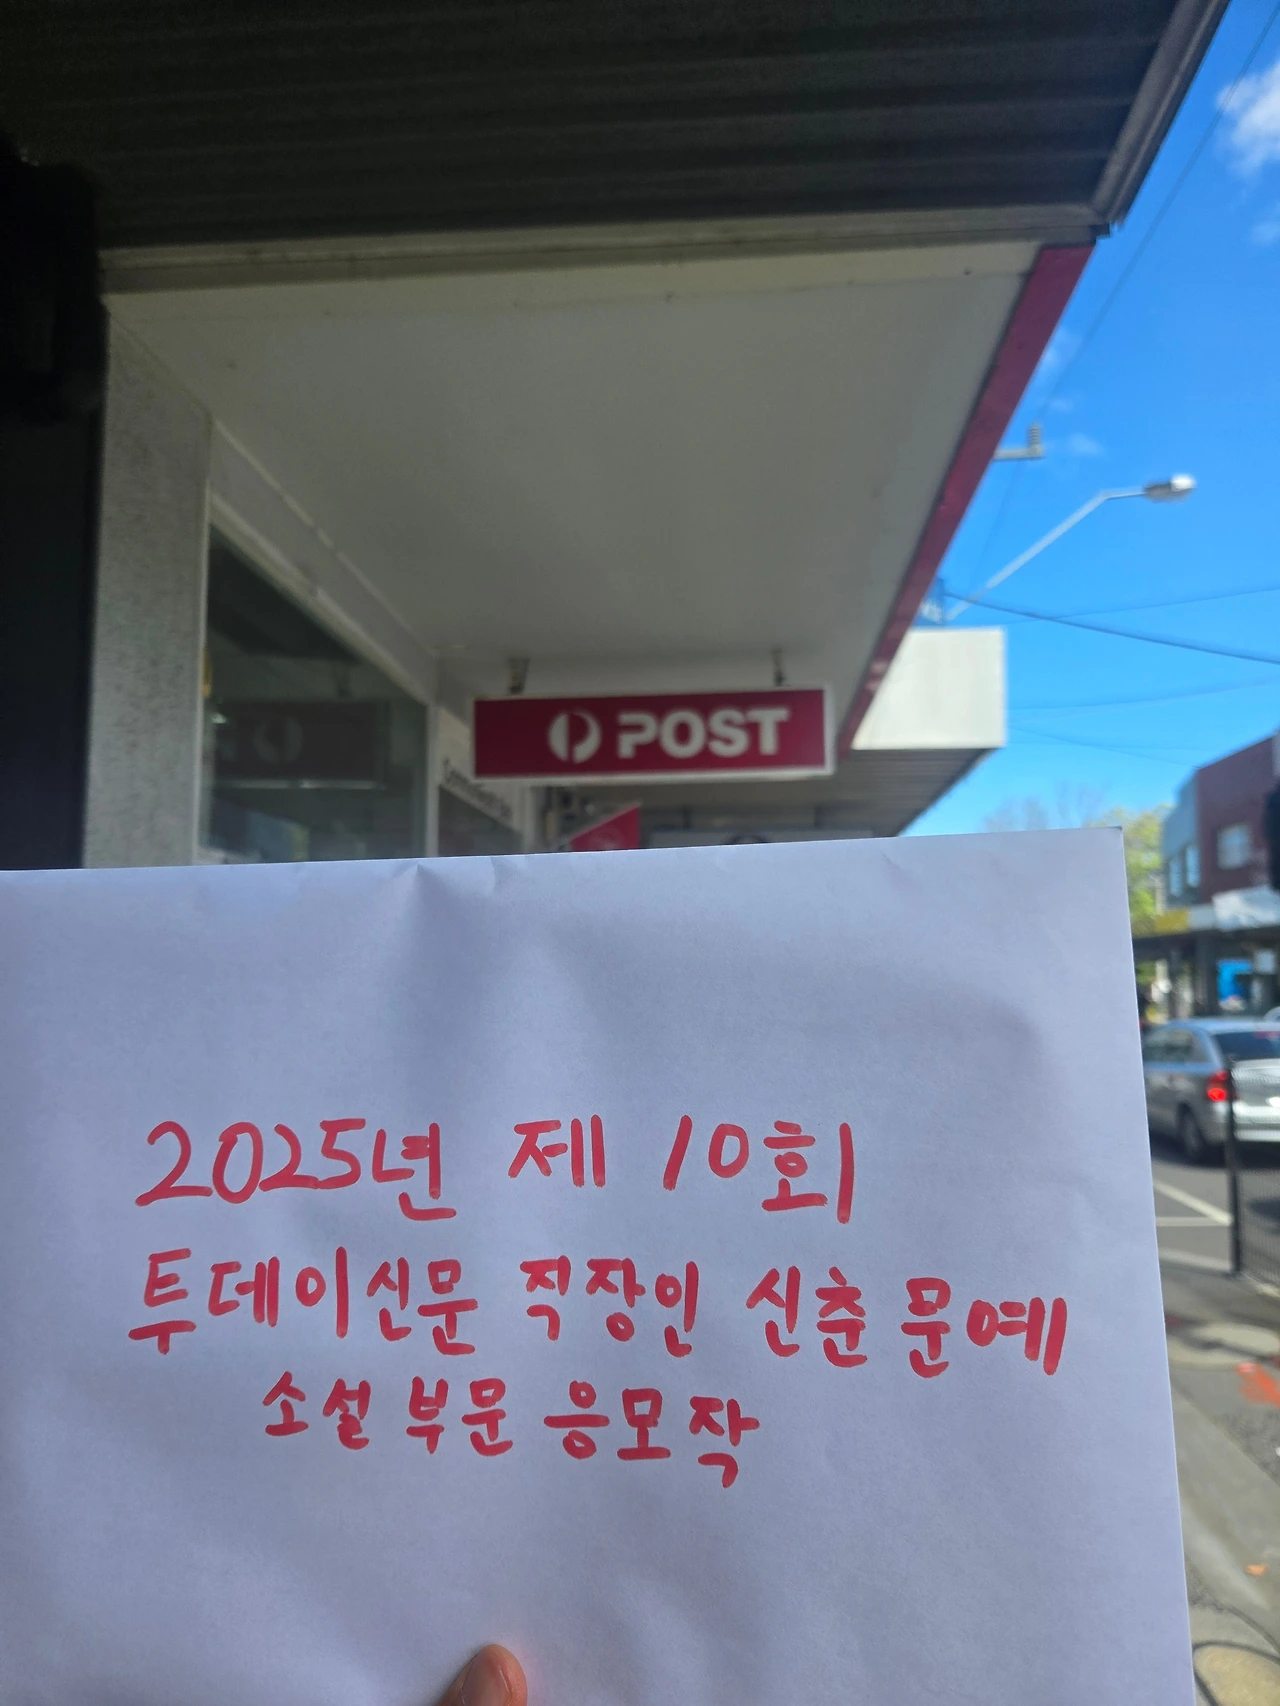 POST
2025년 제 10회
투데이신문 직장인 신춘문예
소설 부문 응모작